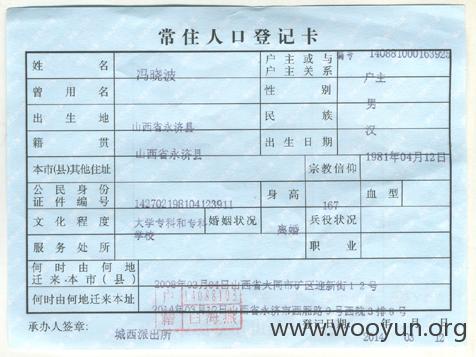 常住人口登记卡
编号 140881000163923
姓名 冯晓波 户主或与户主关系 户主
曾用名 性别 男
出生地 山西省永济县 民族 汉
籍贯 山西省永济县 出生日期 1981年04月12日
本市(县)其他住址 宗教信仰
公民身份证件编号 142702198104123911 身高 167 血型
文化程度 大学专科和专科学校 婚姻状况 离婚 兵役状况
服务处所 职业
何时由何地迁来本市(县) 2008年03月04日山西省大同市矿区迎新街12号
何时由何地迁来本址
承办人签章: 城西派出所 登记日期: 2014年03月12日
www.wooyun.org